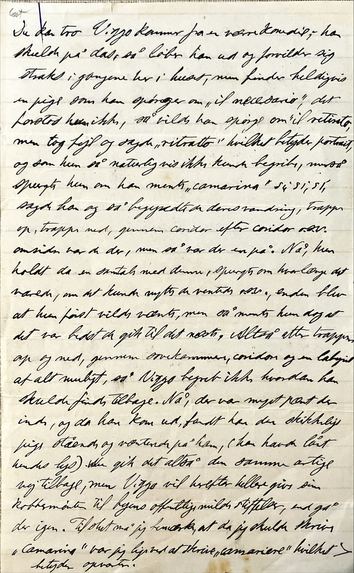 Du kan tro Viggo kommer fra en værre komedie; han
skulde på das, så løber han ud og forvilder sig
straks i gangene her i huset, men finder heldigvis
en pige som han spørger om „il necesario", det
forstod hun ikke, så vilde han spørge om il retirato,
men tog fejl og sagde „ritratto" hvilket betyder portræt,
og som hun så naturligvis ikke kunde begribe, men så
spurgte hun om han mente „camarina" si, si, si,
sagde han og så begyndte deres vandring, trappe
op, trappe ned, gennem coridor efter coridor osv.
omsider var de der, men så var der en på. Nå, hun
holdt da en samtale med denne, spurgte om hvor længe det
varede, om det kunde nytte at vente osv., enden blev
at hun først vilde vente, men så mente hun dog at
det var bedst de gik til det næste. Altså atter trapper
op og ned, gennem sovekammer, coridor og en labyrint
af alt muligt, så Viggo begreb ikke hvordan han
skulde finde tilbage. Nå, der var meget pænt der
inde, og da han kom ud, fandt han den skikkelige
pige stående og ventende på ham, (han havde lånt
hendes lys) nu gik det altså den samme
vej tilbage, men Viggo vil herefter hellere give sin
til byens offentlig milde stiftelser, end gå
der igen. Til slut må jeg bemærke, at da jeg skulde skrive
„camarina" var jeg lige ved at skrive „camariere" hvilket
betyder opvarter.